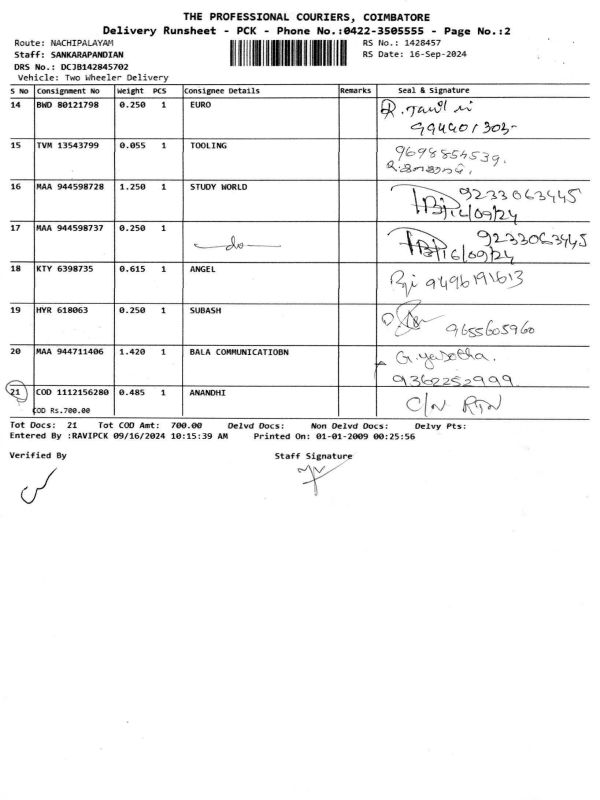 THE PROFESSIONAL COURIERS, COIMBATORE
Delivery Runsheet - PCK - Phone No.:0422-3505555 - Page No.:2
Route: NACHIPALAYAM RS No.: 1428457
Staff: SANKARAPANDIAN RS Date: 16-Sep-2024
DRS No.: DCJB142845702
Vehicle: Two Wheeler Delivery
S No Consignment No Weight PCS Consignee Details Remarks Seal & Signature
14 BWD 80121798 0.250 1 EURO
15 TVM 13543799 0.055 1 TOOLING 9698854539.
16 MAA 944598728 1.250 1 STUDY WORLD 9233063445
16/09/24
17 MAA 944598737 0.250 1 —do— 9233063445
16/09/24
18 KTY 6398735 0.615 1 ANGEL
19 HYR 618063 0.250 1 SUBASH
9655605960
20 MAA 944711406 1.420 1 BALA COMMUNICATIOBN
9362252999
21 COD 1112156280 0.485 1 ANANDHI C/N RTN
COD Rs.700.00
Tot Docs: 21 Tot COD Amt: 700.00 Delvd Docs: Non Delvd Docs: Delvy Pts:
Entered By :RAVIPCK 09/16/2024 10:15:39 AM Printed On: 01-01-2009 00:25:56
Verified By Staff Signature